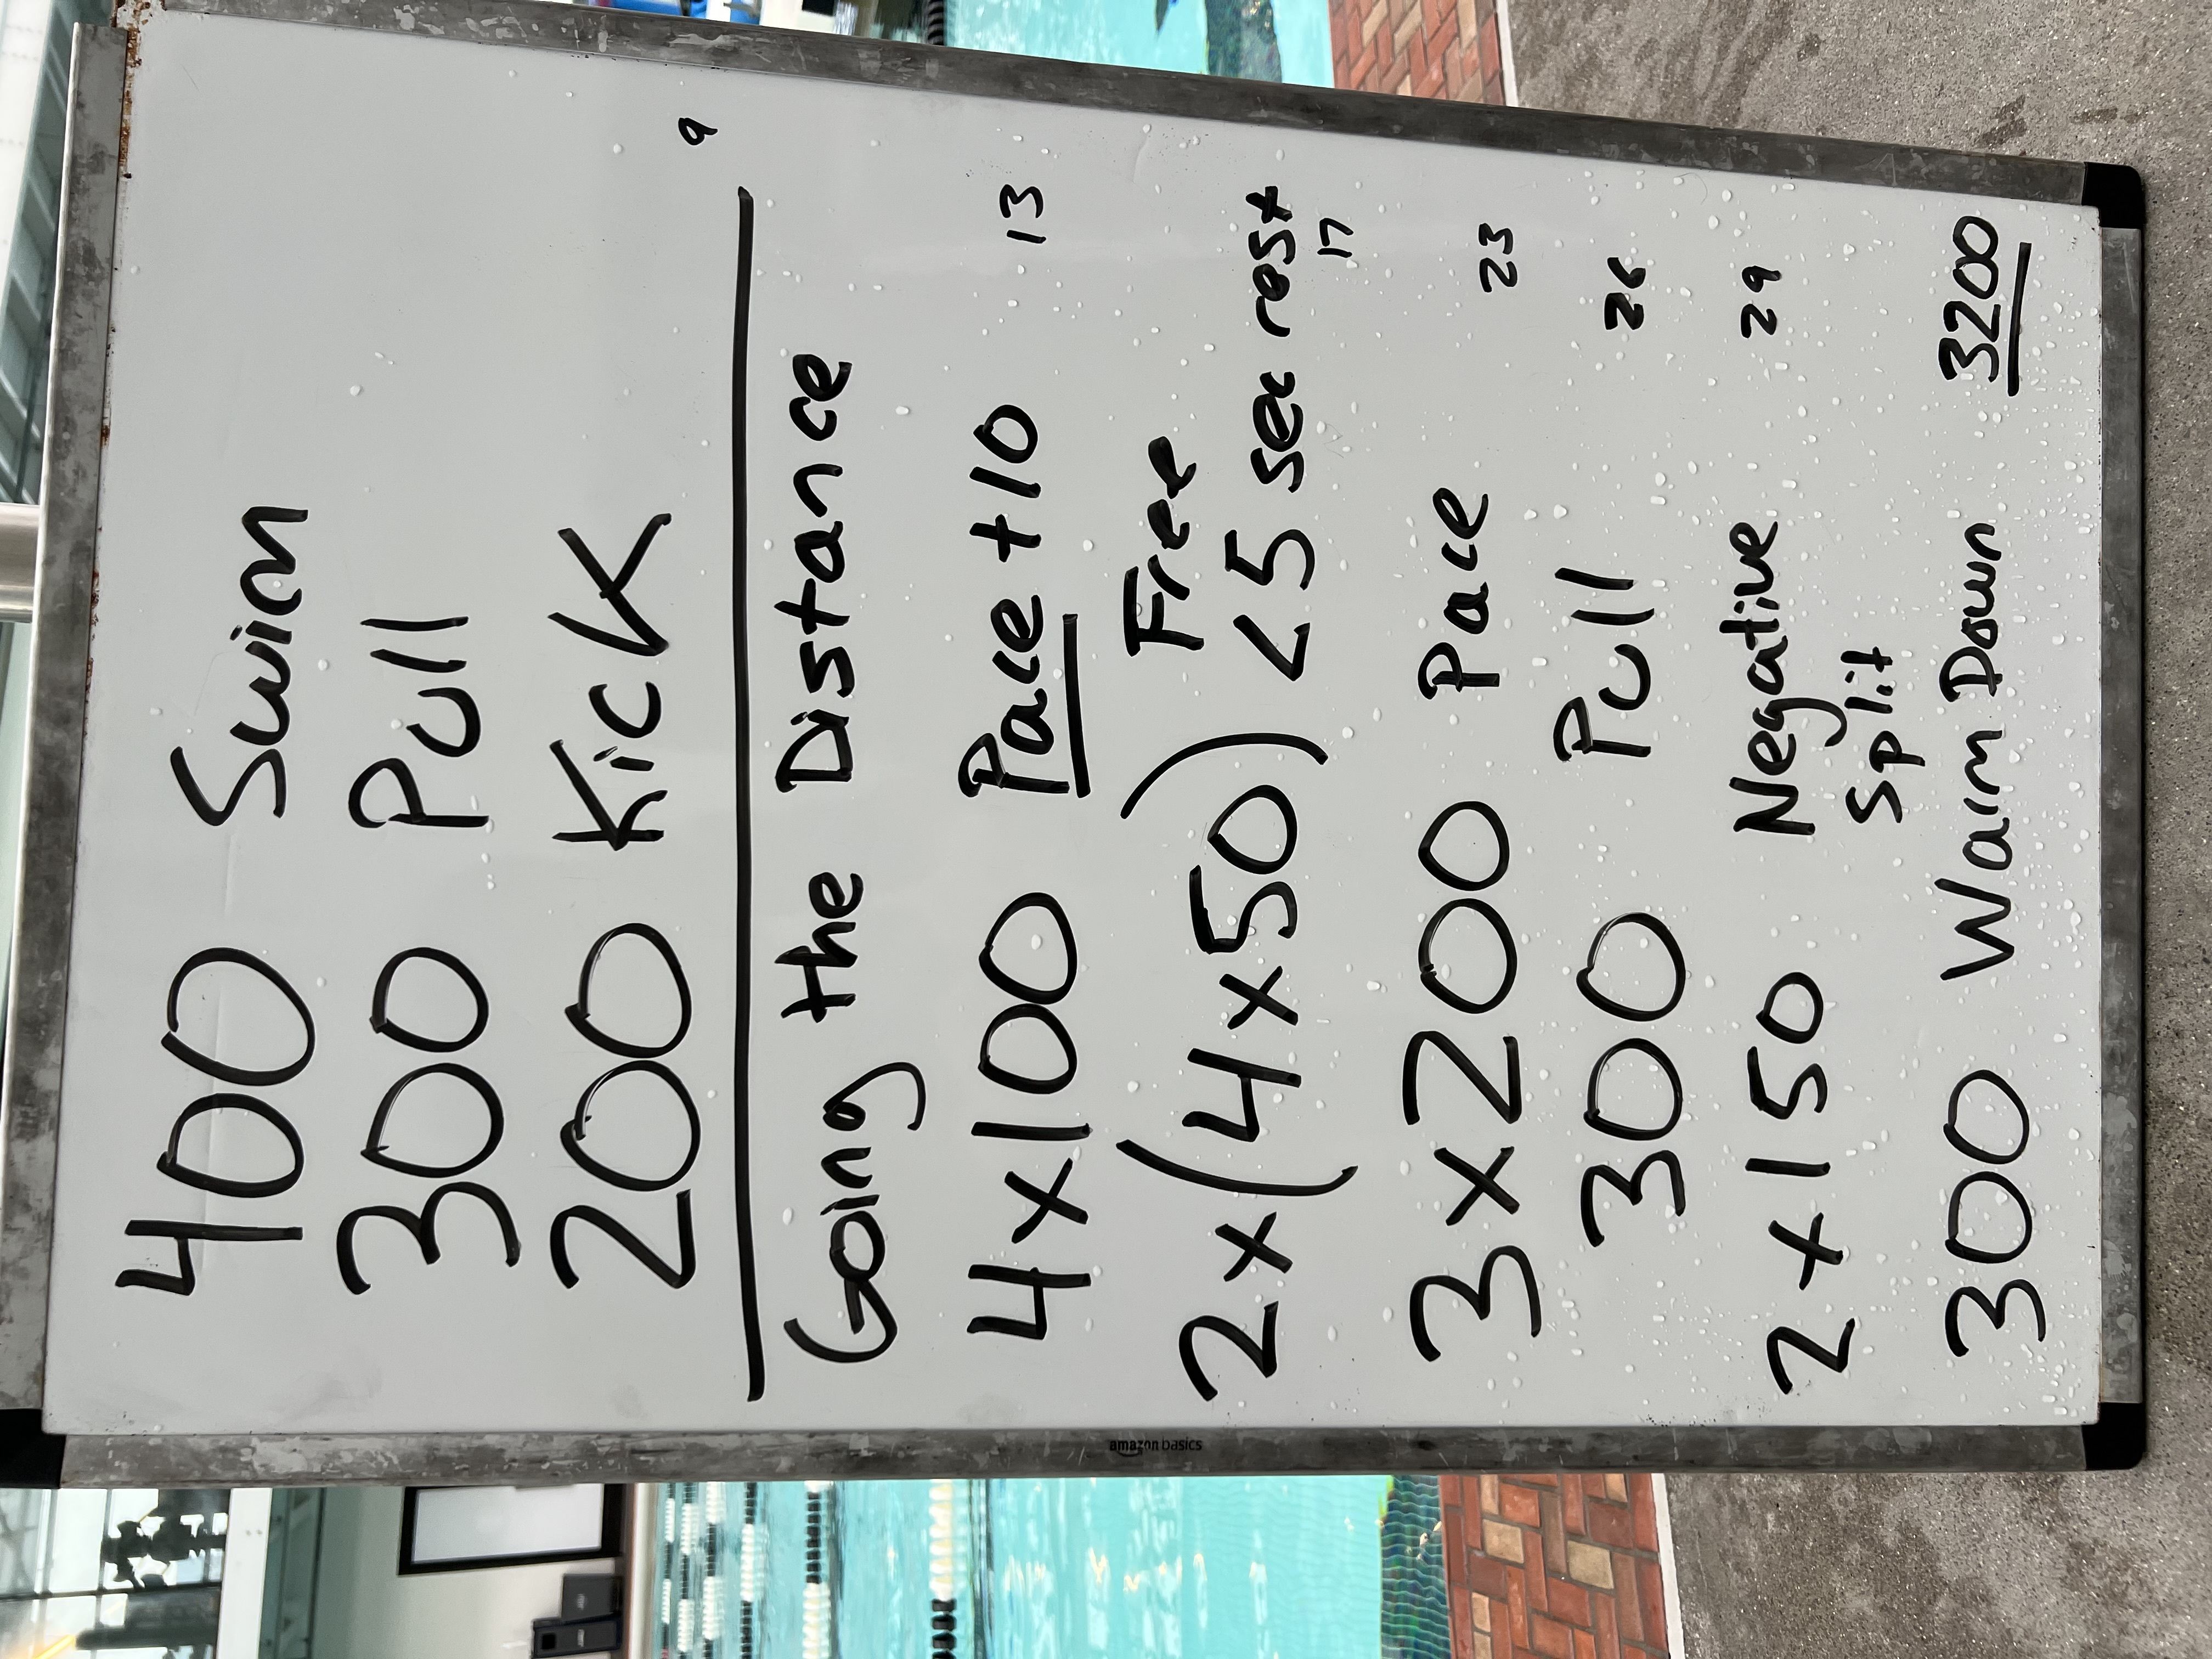 400 Swim
300 Pull
200 Kick
9
Going the Distance
4x100 Pace +10 13
2x(4x50) Free
<5 sec rest
17
3x200 Pace 23
300 Pull 26
2x150 Negative 29
Split
300 Warm Down 3200
amazon basics